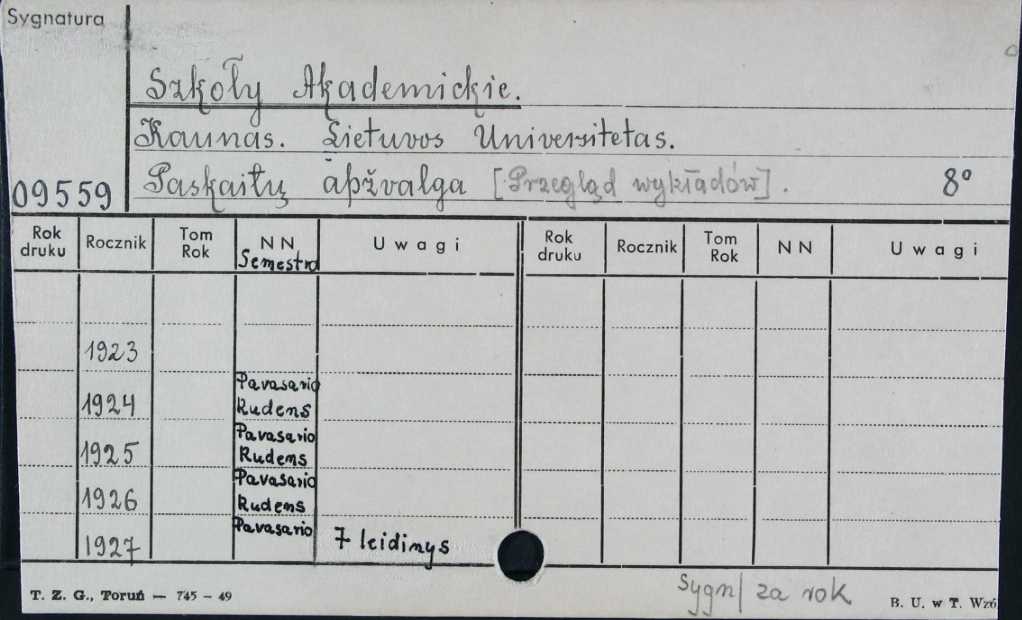 Sygnatura
Szkoły Akademickie.
Kaunas. Lietuvos Universitetas.
09559 Paskaitų apžvalga [Przegląd wykładów]. 8°
Rok druku Rocznik Tom Rok NN Semestro Uwagi Rok druku Rocznik Tom Rok NN Uwagi
1923
1924 Pavasario
Rudens
1925 Pavasario
Rudens
1926 Pavasario
Rudens
1927 Pavasario 7 leidinys
Sygn/ za rok
T. Z. G., Toruń — 745 - 49 B. U. w T. Wzó